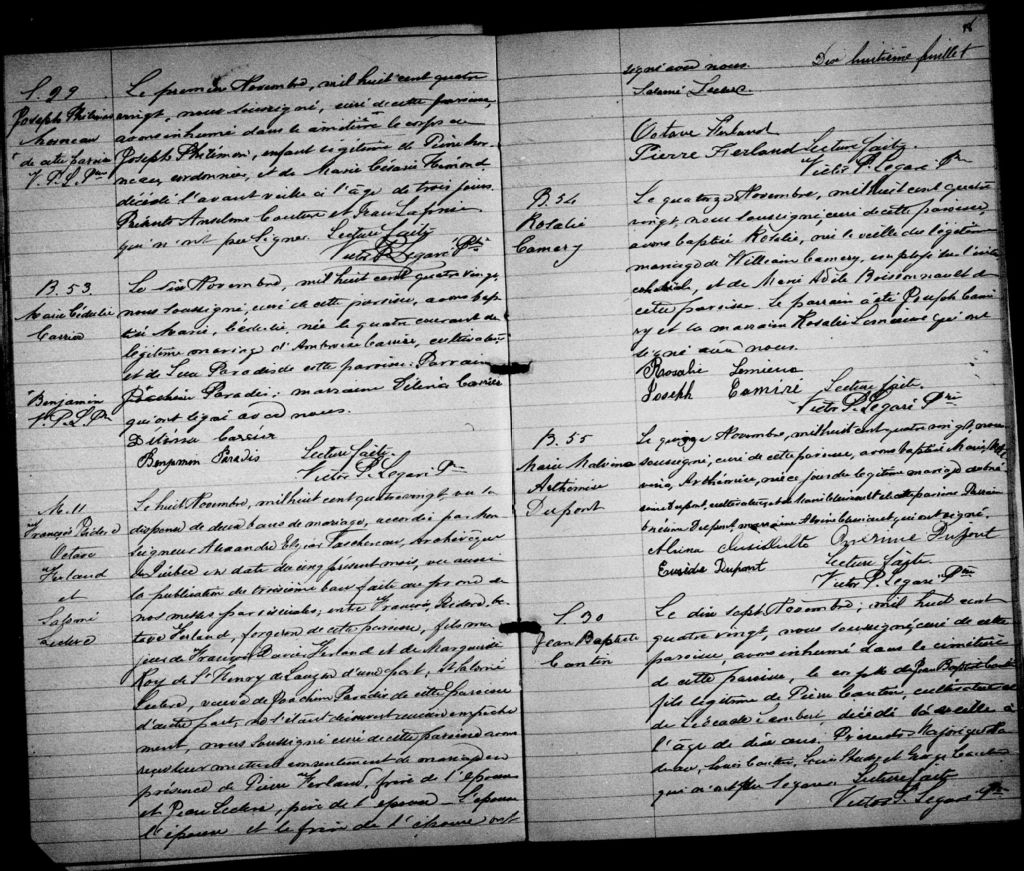 S. 29
Joseph Philémon
Morneau
de cette paroisse
V. P. L. Ptre
Le premier Novembre, mil huit cent quatre
vingt, nous soussigné, curé de cette paroisse,
avons inhumé dans le cimetière le corps de
Joseph Philémon, enfant légitime de Pierre Mor-
neau, cordonnier, et de Marie Césarie
décédé l'avant veille à l'âge de trois jours.
Présents Anselme Couture et Jean
qui n'ont pu signer. Lecture faite
Victor P. Legaré Ptre
B. 53.
Marie Cédulie
Carrier
Benjamin
V. P. L. Ptre
Le six Novembre, mil huit cent quatre vingt,
nous soussigné, curé de cette paroisse, avons bap-
tisé Marie, Cédulie, née le quatre courant du
légitime mariage d'Ambroise Carrier, cultivateur
et de Paradis de cette paroisse. Parrain
Paradis; marraine Carrier
qui ont signé avec nous.
Carrier
Benjamin Paradis Lecture faite.
Victor P. Legaré Ptre
M. 11
François
Octave
Ferland
et
Salomé
Leclerc
Le huit Novembre, mil huit cent quatre vingt vu la
dispense de deux bans de mariage, accordée par Mon
Seigneur Alexandre Taschereau, Archevêque
de Québec en date du cinq présent mois, vu aussi
la publication du troisième ban faite au prône de
nos messes paroissiales; entre François Oc-
tave Ferland, forgeron de cette paroisse, fils ma-
jeur de François Ferland et de Marguerite
Roy de St Henry de Lauzon d'une part, et Salomé
Leclerc, veuve de Joachim Paradis de cette paroisse
d'autre part, ne s'étant découvert aucun empêche
ment, nous soussigné curé de cette paroisse avons
reçu leur mutuel consentement de mariage en
présence de Pierre Ferland, frère de l'époux
et Leclerc, père de l'épouse l'époux
l'épouse et le frère de l'époux ont
Dix huitième feuillet
signé avec nous.
Salomé Leclerc
Octave Ferland
Pierre Ferland Lecture faite
Victor P. Legaré Ptre
B. 54
Rosalie
Camery
Le quatorze Novembre, mil huit cent quatre
vingt, nous soussigné, curé de cette paroisse,
avons baptisé Rosalie, née la veille du légitime
mariage de William Camery, employé sur l'inter-
colonial, et de Marie Adèle Boissonnault de
cette paroisse. Le parrain a été Joseph Cami
ry et la marraine Rosalie Lemieux qui ont
signé avec nous.
Rosalie Lemieux
Joseph Camiré Lecture faite.
Victor P. Legaré Ptre
B. 55
Marie Malvina
Arthémise
Dupont
Le quinze Novembre, mil huit cent quatre vingt, nous
soussigné, curé de cette paroisse, avons baptisé Marie, Mal-
vina, Arthémise, née ce jour du légitime mariage
Dupont, cultivateur, et de cette paroisse. Parrain
Dupont, marraine qui ont signé.
Onésime Dupont
Dupont Lecture faite
Victor P. Legaré Ptre
S. 30
Jean Baptiste
Cantin
Le dix sept Novembre, mil huit cent
quatre vingt, nous soussigné, curé de cette
paroisse, avons inhumé dans le cimetière
de cette paroisse, le corps de Jean Baptiste
fils légitime de Pierre Cantin, cultivateur
de décédé la veille à
l'âge de dix ans. Présents
Louis Cantin, Louis et George Cantin
qui n'ont pu signer. Lecture faite
Victor P. Legaré Ptre